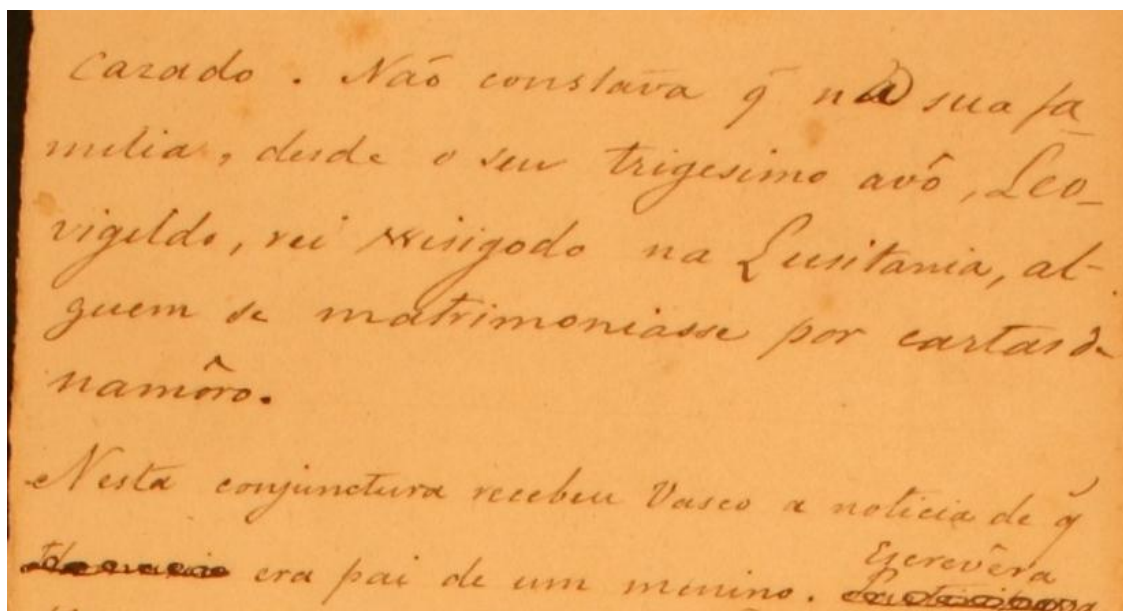 cazado. Não constava q̃ na sua fa-
milia, desde o seu trigesimo avô, Leo-
vigildo, rei visigodo na Lusitania, al-
guem se matrimoniasse por cartas de
namôro.
Nesta conjunctura recebeu Vasco a noticia de q̃
Escrevêra
era pai de um menino.